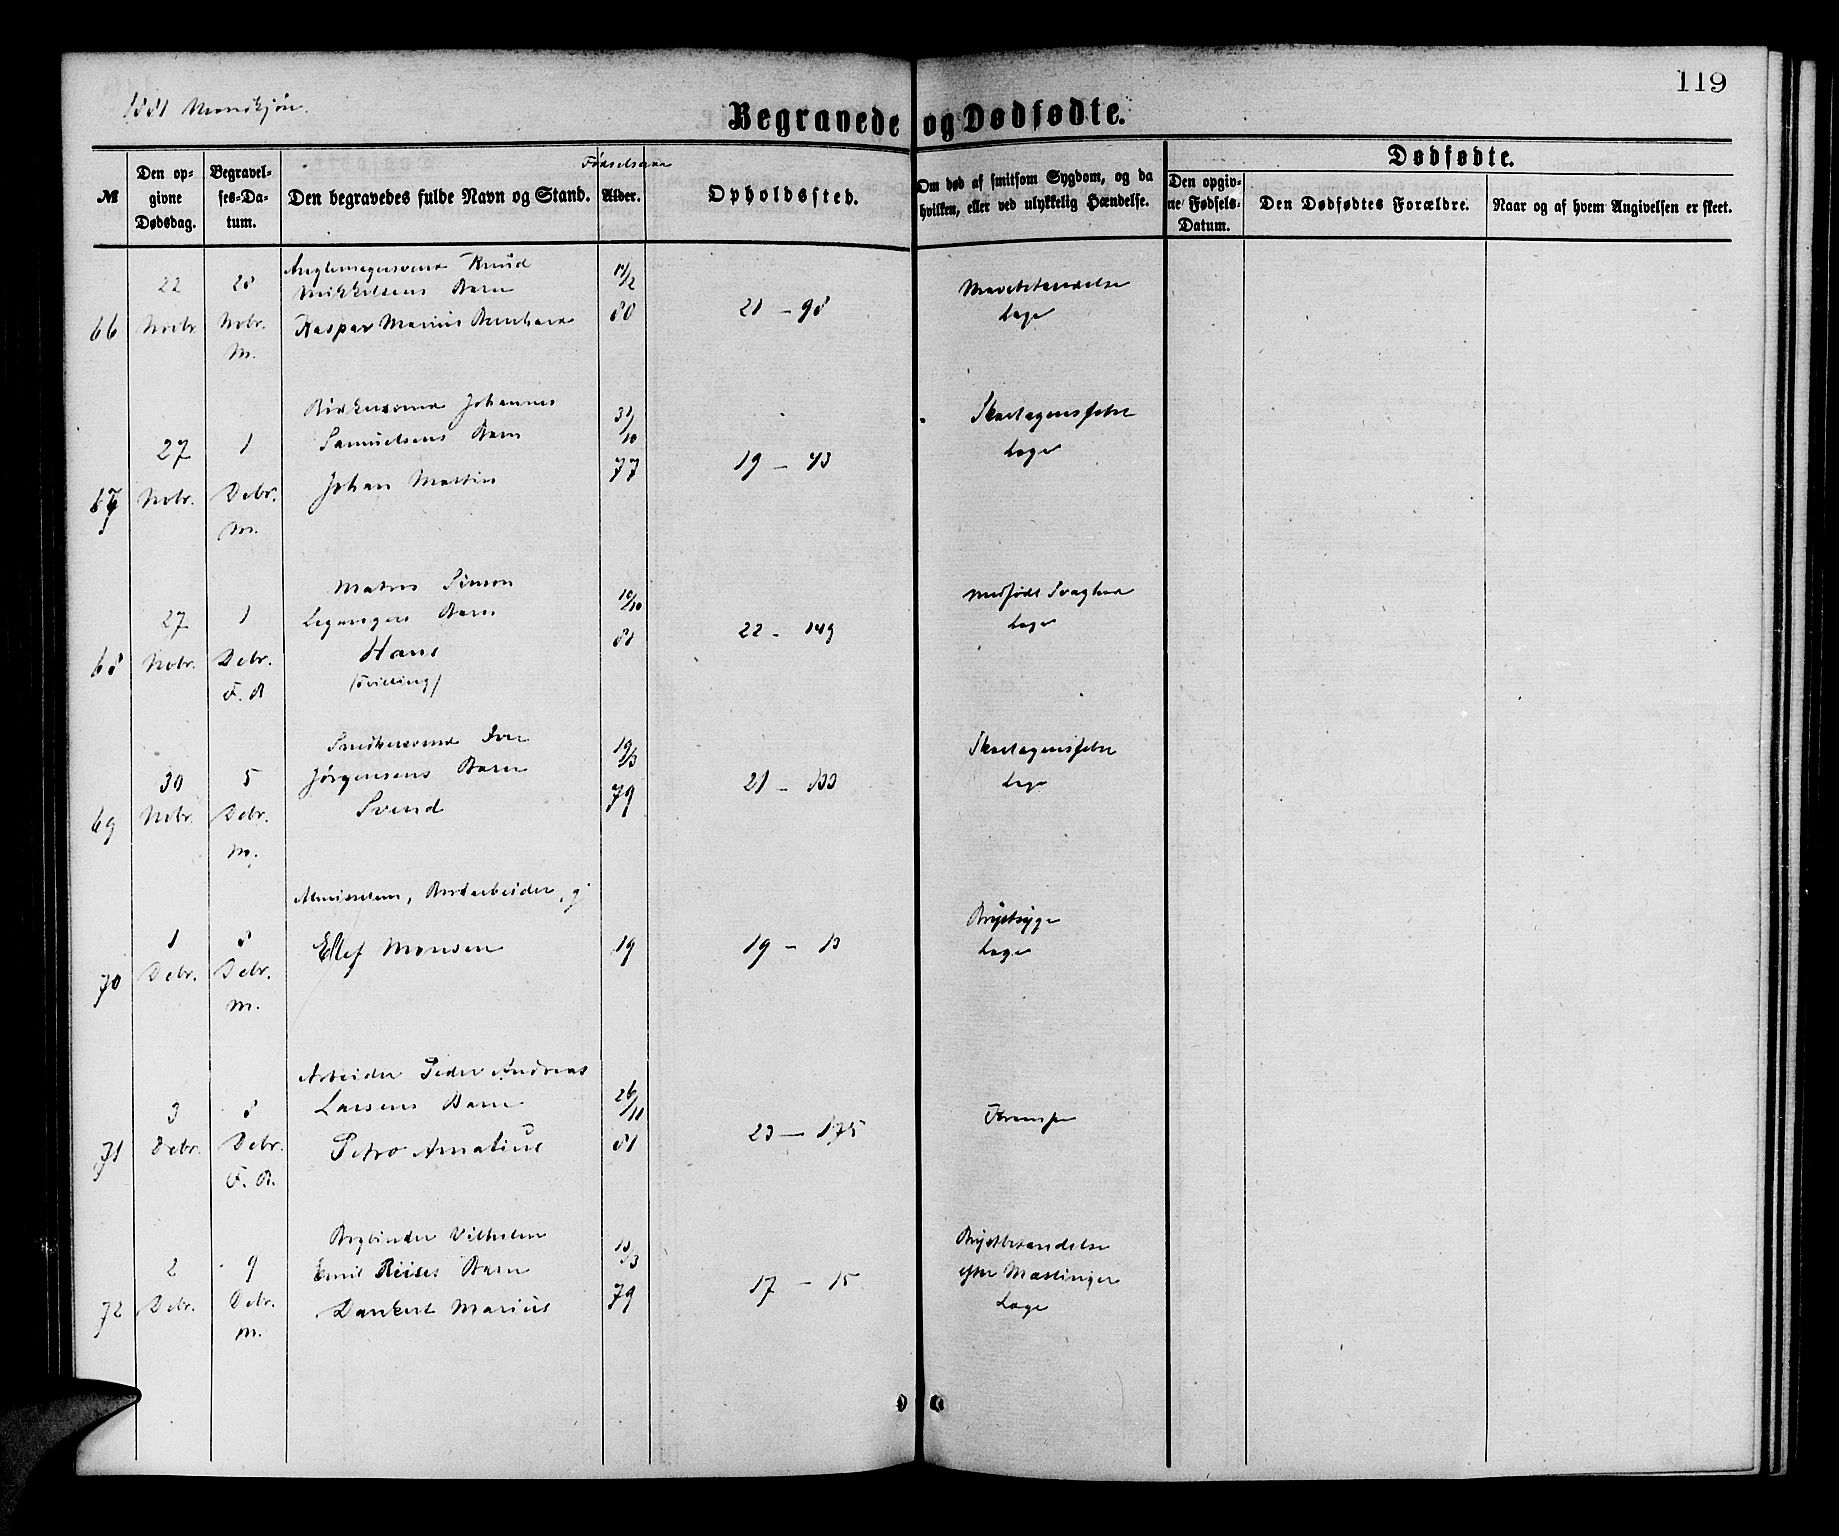 119
1881 Mandkjøn.
Begravede og Dødfødte.
Dødfødte.
Fødselsaar
M
Den opgivne Dødsdag.
Begravelses-Datum.
Den begravedes fulde Navn og Stand.
Alder.
Opholdssted.
Om død af smitsom Sygdom, og da hvilken, eller ved ulykkelig Hændelse.
Den opgivne Fødsels-Datum.
Den Dødfødtes Forældre.
Naar og af hvem Angivelsen er skeet.
66
22 Novbr
28 Nvbr. M.
Knud
Mikkelsens Barn
Kaspar Marius Bernhard
80
21 – 98
Læge
67
27 Nvbr.
1 Debr. M.
Bødkersvend Johannes
Samuelsens Barn
Johan Martin
31/10
77
19 – 43
Skarlagensfeber
Læge
68
27 Nvbr.
1 Debr. F. B
Matros Simon
Barn
Hans
(Tvilling)
10/10
81
22 – 149
medfødt Svaghed
Læge
69
30 Nvbr.
5 Debr. M.
Snedkersvend Iver
Jørgensens Barn
Svend
19/3
79
21 – 133
Skarlagensfeber
Læge
70
1 Debr.
8 Debr. M.
Almisselem,
Ellef Monsen
19
19 – 13
Brystsyge
Læge
71
3 Debr.
8 Debr. F. B.
Arbeider Peder Andreas
Larsens Barn
Petro Amalius
26/11
81
23 – 175
Krampe
72
2 Debr.
9 Debr. M.
Bogbinder Vilhelm
Emil Reises Barn
Dankert Marius
13/3
79
17 – 15
Brystbetændelse
efter Mæslinger
Læge